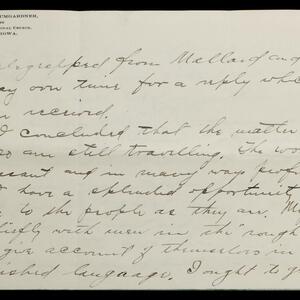 UMGARDNER,
ional Church,
IOWA.
elegraphed from Mallard and
y own time for a reply whic
n received.
I concluded that the matter
so am still travelling. The wo
esant and in many ways prof
I have a splended opportunity
to the people as they are. M
iefly with men in the "rough
give account of themselves in
ished language. I ought to g